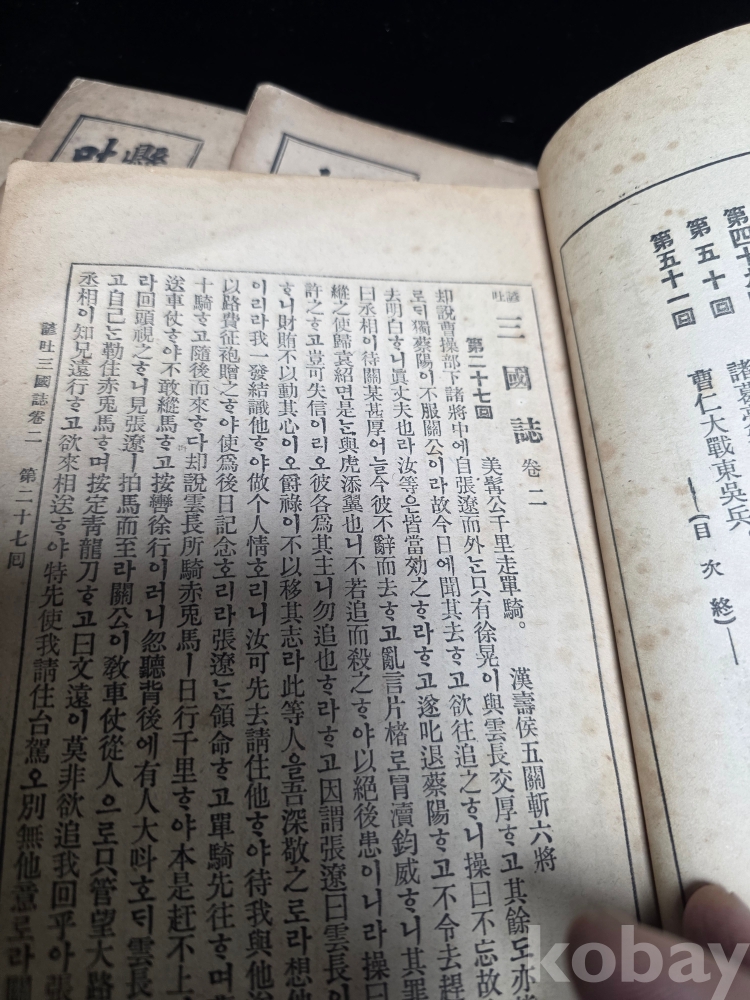 第五十回
第五十一回
曹仁大戰東吳兵
(目次終)
諺吐 三國誌 卷二
第二十七回 美髯公千里走單騎。 漢壽侯五關斬六將
却說曹操部下諸將中에自張遼而外ᄂᆞᆫ只有徐晃이與雲長交厚ᄒᆞ고其餘도亦
로ᄃᆡ獨蔡陽이不服關公이라故今日에聞其去ᄒᆞ고欲往追之ᄒᆞ니操曰不忘故
去明白ᄒᆞ니眞丈夫也라汝等은皆當効之ᄒᆞ라ᄒᆞ고遂叱退蔡陽ᄒᆞ고不令去趕
曰丞相이待關某甚厚어ᄂᆞᆯ今彼不辭而去ᄒᆞ고亂言片楮로冒瀆鈞威ᄒᆞ니其罪
縱之使歸袁紹면是ᄂᆞᆫ與虎添翼也니不若追而殺之ᄒᆞ야以絶後患이니라操曰
許之ᄒᆞ고豈可失信이리오彼各爲其主ㅣ니勿追也ᄒᆞ라ᄒᆞ고因謂張遼曰雲長이
ᄒᆞ니財賄不以動其心이오爵祿이不以移其志라此等人을吾深敬之로라想他
이리라我一發結識他ᄒᆞ야做个人情호리니汝可先去請住他ᄒᆞ야待我與他
以路費征袍贈之ᄒᆞ야使爲後日記念호리라張遼ᄂᆞᆫ領命ᄒᆞ고單騎先往ᄒᆞ며
十騎ᄒᆞ고隨後而來ᄒᆞ다却說雲長所騎赤兎馬ㅣ日行千里ᄒᆞ야本是赶不上
送車仗ᄒᆞ야不敢縱馬ᄒᆞ고按轡徐行이러니忽聽背後에有人大呌호ᄃᆡ雲長
라回頭視之ᄒᆞ니見張遼ㅣ拍馬而至라關公이敎車仗從人으로只管望大路
고自己ᄂᆞᆫ勒住赤兎馬ᄒᆞ며按定靑龍刀ᄒᆞ고曰文遠이莫非欲追我回乎아張
丞相이知兄遠行ᄒᆞ고欲來相送ᄒᆞ야特先使我請住台駕오別無他意로라關
諺吐三國誌卷二 第二十七回
kobay